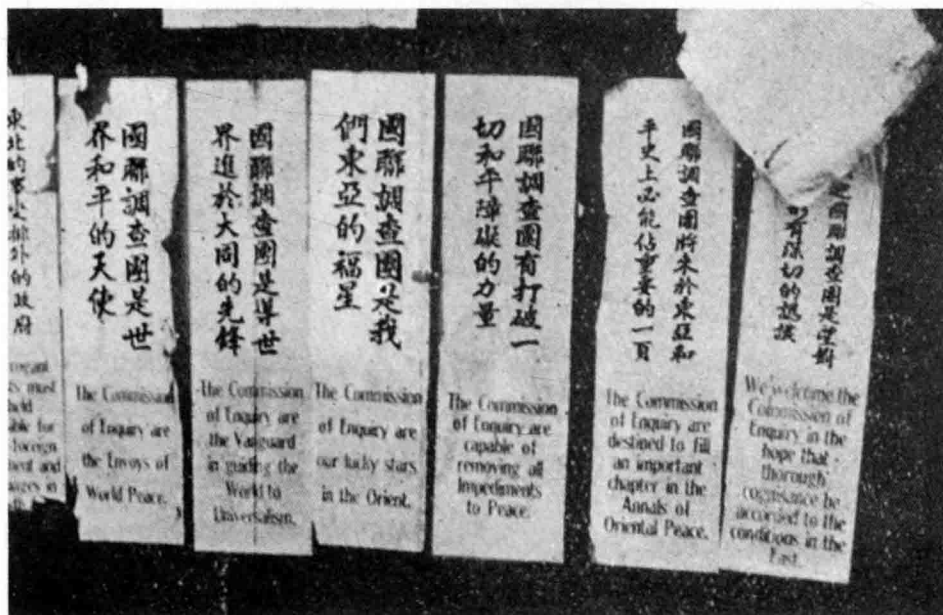 東北的事變排外的政府
must
held
for
foreign
and
in
國聯調查團是世
界和平的天使
The Commission
of Enquiry are
the Envoys of
World Peace.
國聯調查團是導世
界進於大同的先鋒
The Commission
of Enquiry are
the Vanguard
in guiding the
World to
Universalism.
國聯調查團是我
們東亞的福星
The Commission
of Enquiry are
our lucky stars
in the Orient.
國聯調查團有打破一
切和平障礙的力量
The Commission
of Enquiry are
capable of
removing all
Impediments
to Peace.
國聯調查團將來於東亞和
平史上必能佔重要的一頁
The Commission
of Enquiry are
destined to fill
an important
chapter in the
Annals of
Oriental Peace.
國聯調查團是望對
有深切的認識
We welcome the
Commission of
Enquiry in the
hope that
thorough
cognisance be
accorded to the
conditions in the
East.